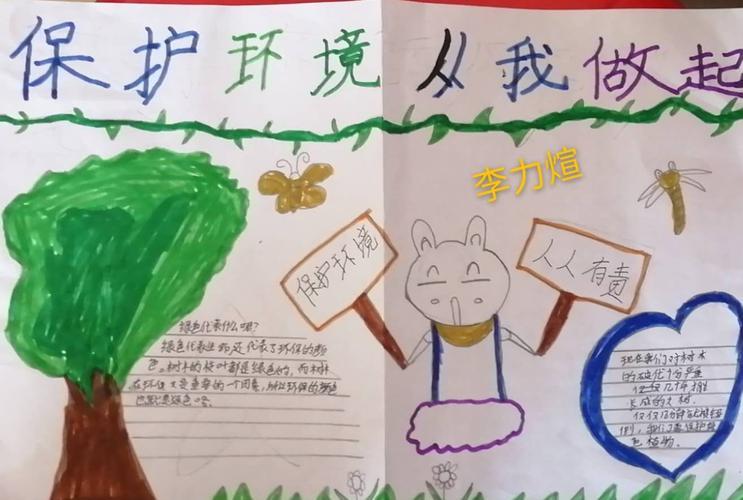 保护环境从我做起
李力煊
保护环境
人人有责
绿色代表什么呢?
绿色代表生物,还代表了环保的颜
色。树木的枝叶都是绿色的,而树林
在环保大是重要的一个因素,所以环保的颜色
也就是绿色咯。
现在我们对树木
的砍伐十分严重
仅仅几十年
长成的大树,
仅仅分钟就被
倒,我们要保护绿
色植物。